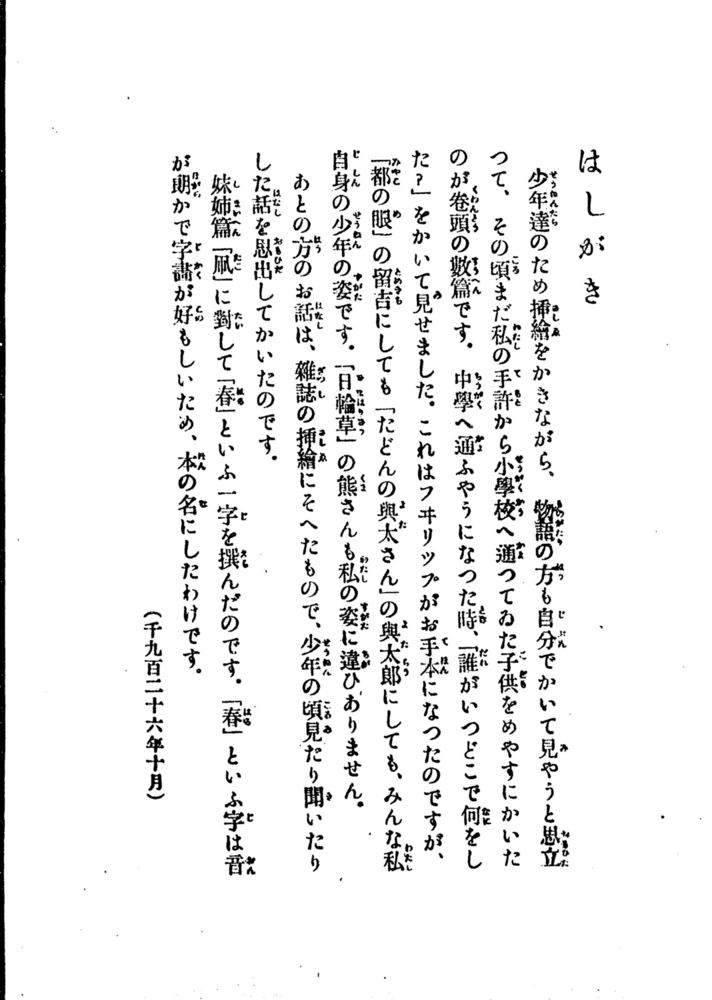 はしがき
少年達のため挿繪をかきながら、物語の方も自分でかいて見やうと思立
つて、その頃まだ私の手許から小學校へ通つてゐた子供をめやすにかいた
のが卷頭の數篇です。中學へ通ふやうになつた時、「誰がいつどこで何をし
た?」をかいて見せました。これはフヰリップがお手本になつたのですが、
「都の眼」の留吉にしても「たどんの與太さん」の與太郎にしても、みんな私
自身の少年の姿です。「日輪草」の熊さんも私の姿に違ひありません。
あとの方のお話は、雜誌の挿繪にそへたもので、少年の頃見たり聞いたり
した話を思出してかいたのです。
妹姉篇「凧」に對して「春」といふ一字を撰んだのです。「春」といふ字は音
が朗かで字畵が好もしいため、本の名にしたわけです。
(千九百二十六年十月)